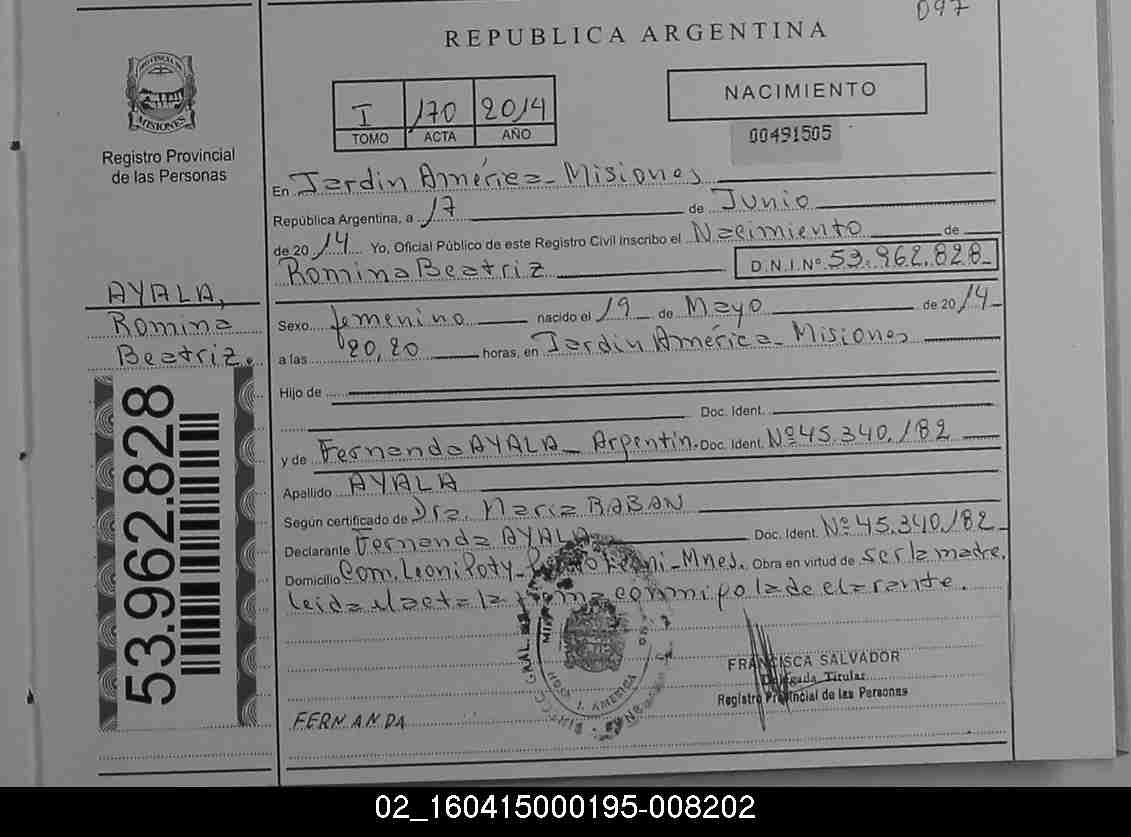 097
REPUBLICA ARGENTINA
PROVINCIA DE
MISIONES
Registro Provincial
de las Personas
I 170 2014
TOMO ACTA AÑO
NACIMIENTO
00491505
En Jardin América - Misiones
República Argentina, a 17 de Junio
de 2014 Yo, Oficial Público de este Registro Civil inscribo el Nacimiento de
Romina Beatriz D.N.I.Nº 53.962.828
AYALA,
Romina
Beatriz.
53.962.828
Sexo femenino nacido el 19 de Mayo de 2014
a las 20,20 horas, en Jardin América - Misiones
Hijo de
Doc. Ident.
y de Fernanda AYALA - Argentin. Doc. Ident. Nº 45.340.182
Apellido AYALA
Según certificado de Dra. Maria BABAN
Declarante Fernanda AYALA Doc. Ident. Nº 45.340.182
Domicilio Com. Leoni Poty - Leoni - Mnes. Obra en virtud de ser la madre.
leida el acta la firma conmigo la declarante.
J. AMERICA
FRANCISCA SALVADOR
Delegada Titular
Registro Provincial de las Personas
FERNANDA
02_160415000195-008202